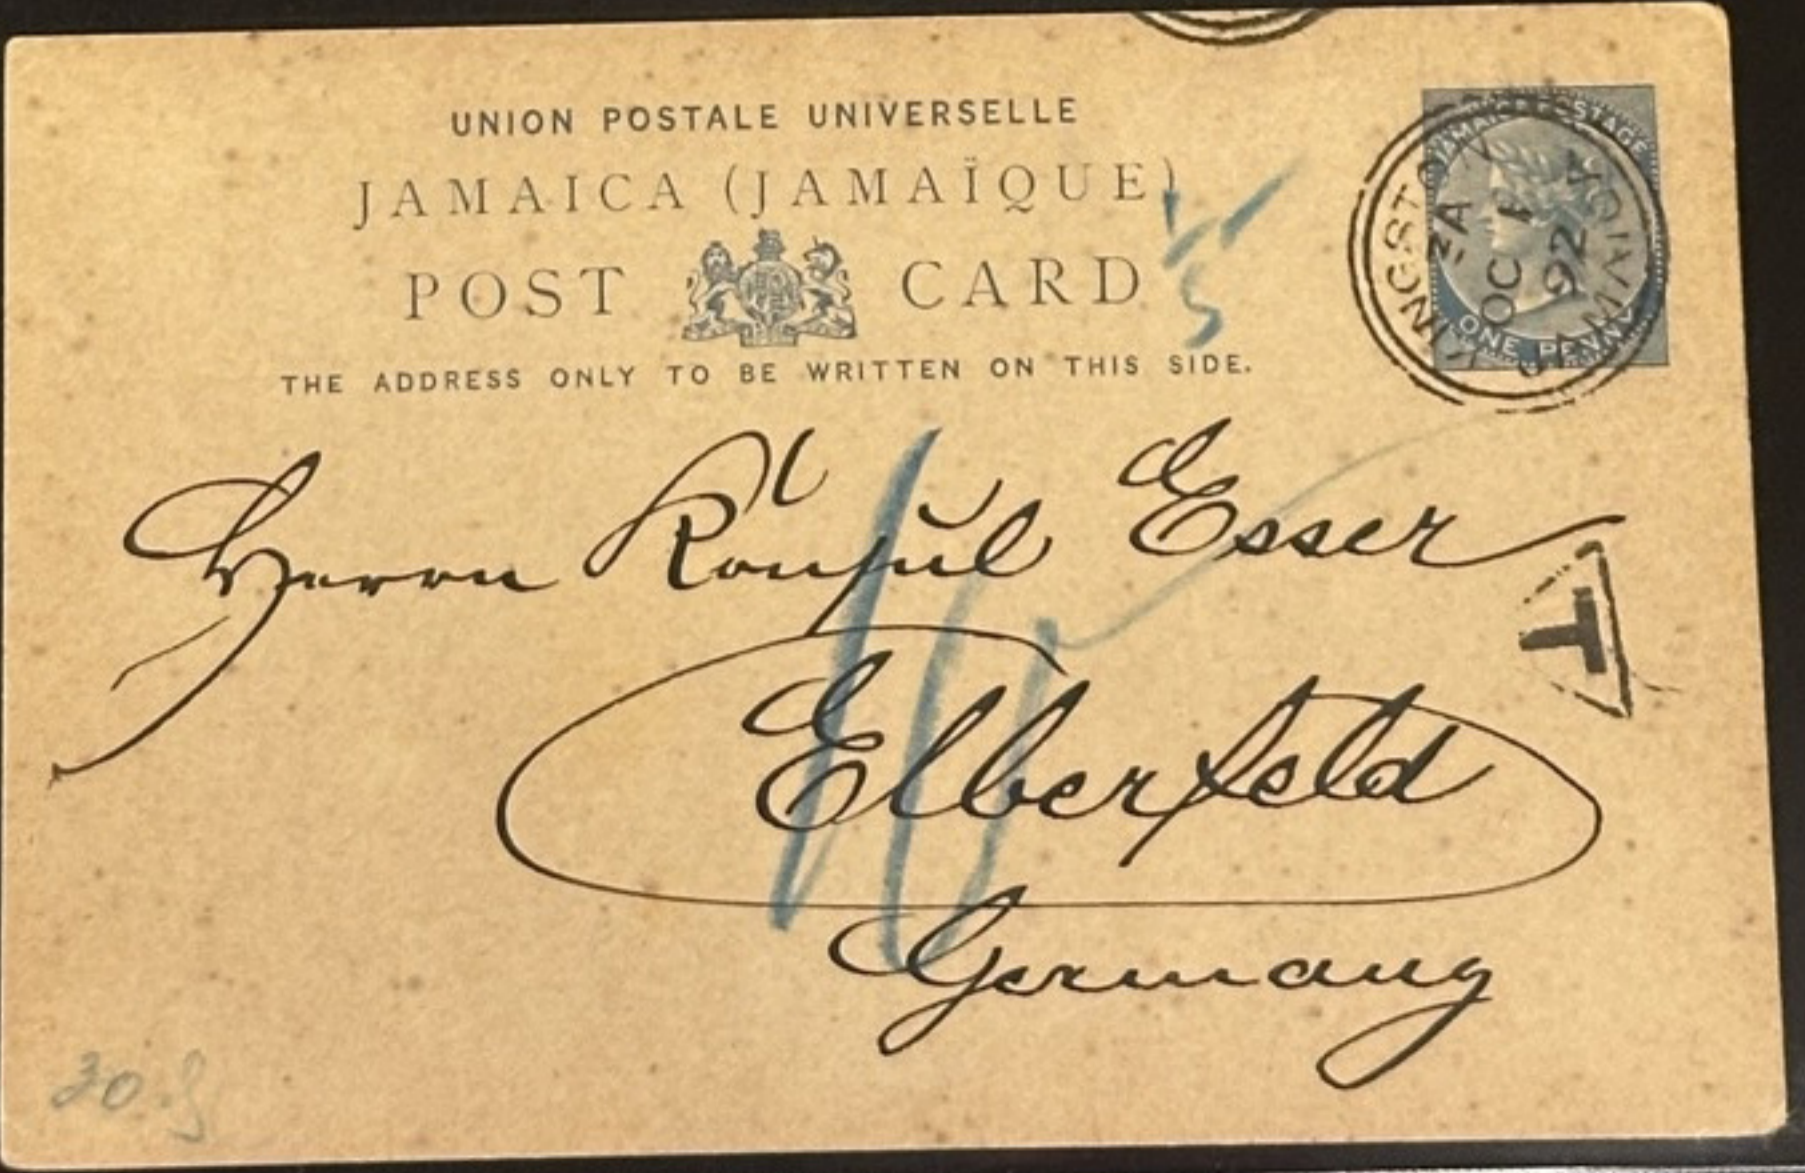 UNION POSTALE UNIVERSELLE
JAMAICA (JAMAÏQUE)
POST CARD
THE ADDRESS ONLY TO BE WRITTEN ON THIS SIDE.
JAMAICA POSTAGE
ONE PENNY
KINGSTON
JAMAICA
A
OC 1
92
Herrn Konsul Esser
T
Elberfeld
Germany
5
10
30.